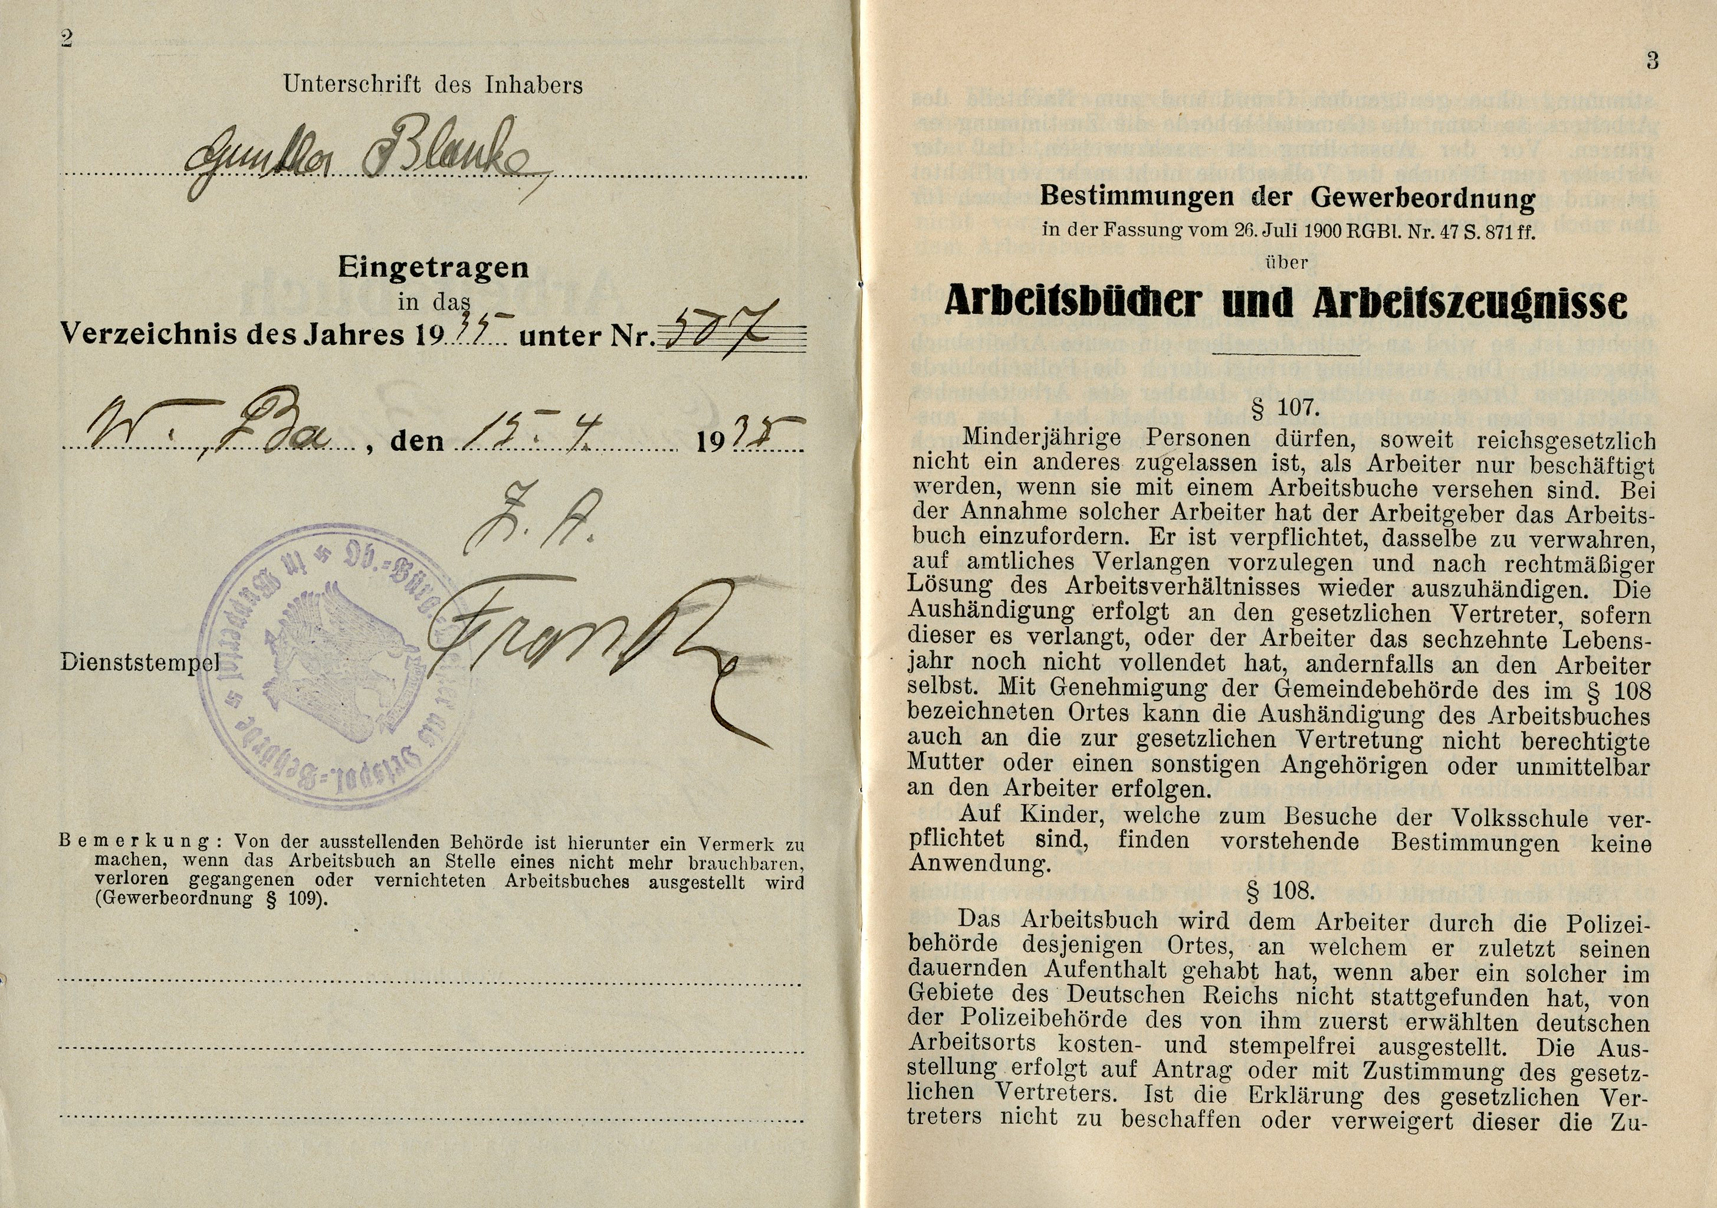 2
Unterschrift des Inhabers
Gunther Blanke
Eingetragen
in das
Verzeichnis des Jahres 1935 unter Nr. 507
W.-Ba, den 15.4. 1935
Dienststempel
Ob.-Bürg. als Ortspol.-Behörde in Wuppertal
Bemerkung: Von der ausstellenden Behörde ist hierunter ein Vermerk zu
machen, wenn das Arbeitsbuch an Stelle eines nicht mehr brauchbaren,
verloren gegangenen oder vernichteten Arbeitsbuches ausgestellt wird
(Gewerbeordnung § 109).
3
Bestimmungen der Gewerbeordnung
in der Fassung vom 26. Juli 1900 RGBl. Nr. 47 S. 871 ff.
über
Arbeitsbücher und Arbeitszeugnisse
§ 107.
Minderjährige Personen dürfen, soweit reichsgesetzlich
nicht ein anderes zugelassen ist, als Arbeiter nur beschäftigt
werden, wenn sie mit einem Arbeitsbuche versehen sind. Bei
der Annahme solcher Arbeiter hat der Arbeitgeber das Arbeits-
buch einzufordern. Er ist verpflichtet, dasselbe zu verwahren,
auf amtliches Verlangen vorzulegen und nach rechtmäßiger
Lösung des Arbeitsverhältnisses wieder auszuhändigen. Die
Aushändigung erfolgt an den gesetzlichen Vertreter, sofern
dieser es verlangt, oder der Arbeiter das sechzehnte Lebens-
jahr noch nicht vollendet hat, andernfalls an den Arbeiter
selbst. Mit Genehmigung der Gemeindebehörde des im § 108
bezeichneten Ortes kann die Aushändigung des Arbeitsbuches
auch an die zur gesetzlichen Vertretung nicht berechtigte
Mutter oder einen sonstigen Angehörigen oder unmittelbar
an den Arbeiter erfolgen.
Auf Kinder, welche zum Besuche der Volksschule ver-
pflichtet sind, finden vorstehende Bestimmungen keine
Anwendung.
§ 108.
Das Arbeitsbuch wird dem Arbeiter durch die Polizei-
behörde desjenigen Ortes, an welchem er zuletzt seinen
dauernden Aufenthalt gehabt hat, wenn aber ein solcher im
Gebiete des Deutschen Reichs nicht stattgefunden hat, von
der Polizeibehörde des von ihm zuerst erwählten deutschen
Arbeitsorts kosten- und stempelfrei ausgestellt. Die Aus-
stellung erfolgt auf Antrag oder mit Zustimmung des gesetz-
lichen Vertreters. Ist die Erklärung des gesetzlichen Ver-
treters nicht zu beschaffen oder verweigert dieser die Zu-